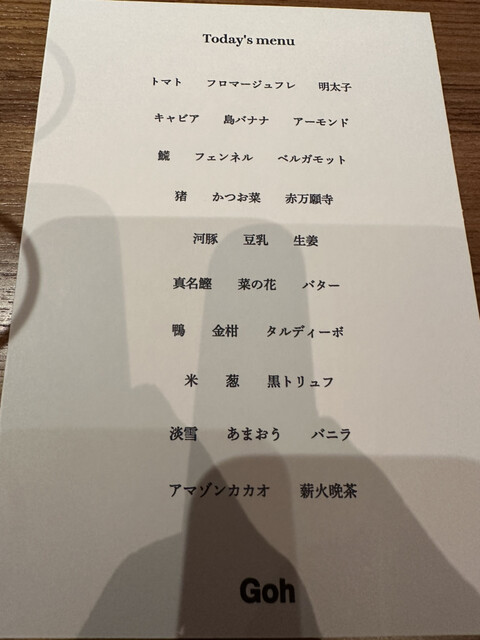 Today's menu
トマト フロマージュフレ 明太子
キャビア 島バナナ アーモンド
鱈 フェンネル ベルガモット
猪 かつお菜 赤万願寺
河豚 豆乳 生姜
真名鰹 菜の花 バター
鴨 金柑 タルディーボ
米 葱 黒トリュフ
淡雪 あまおう バニラ
アマゾンカカオ 薪火晩茶
Goh